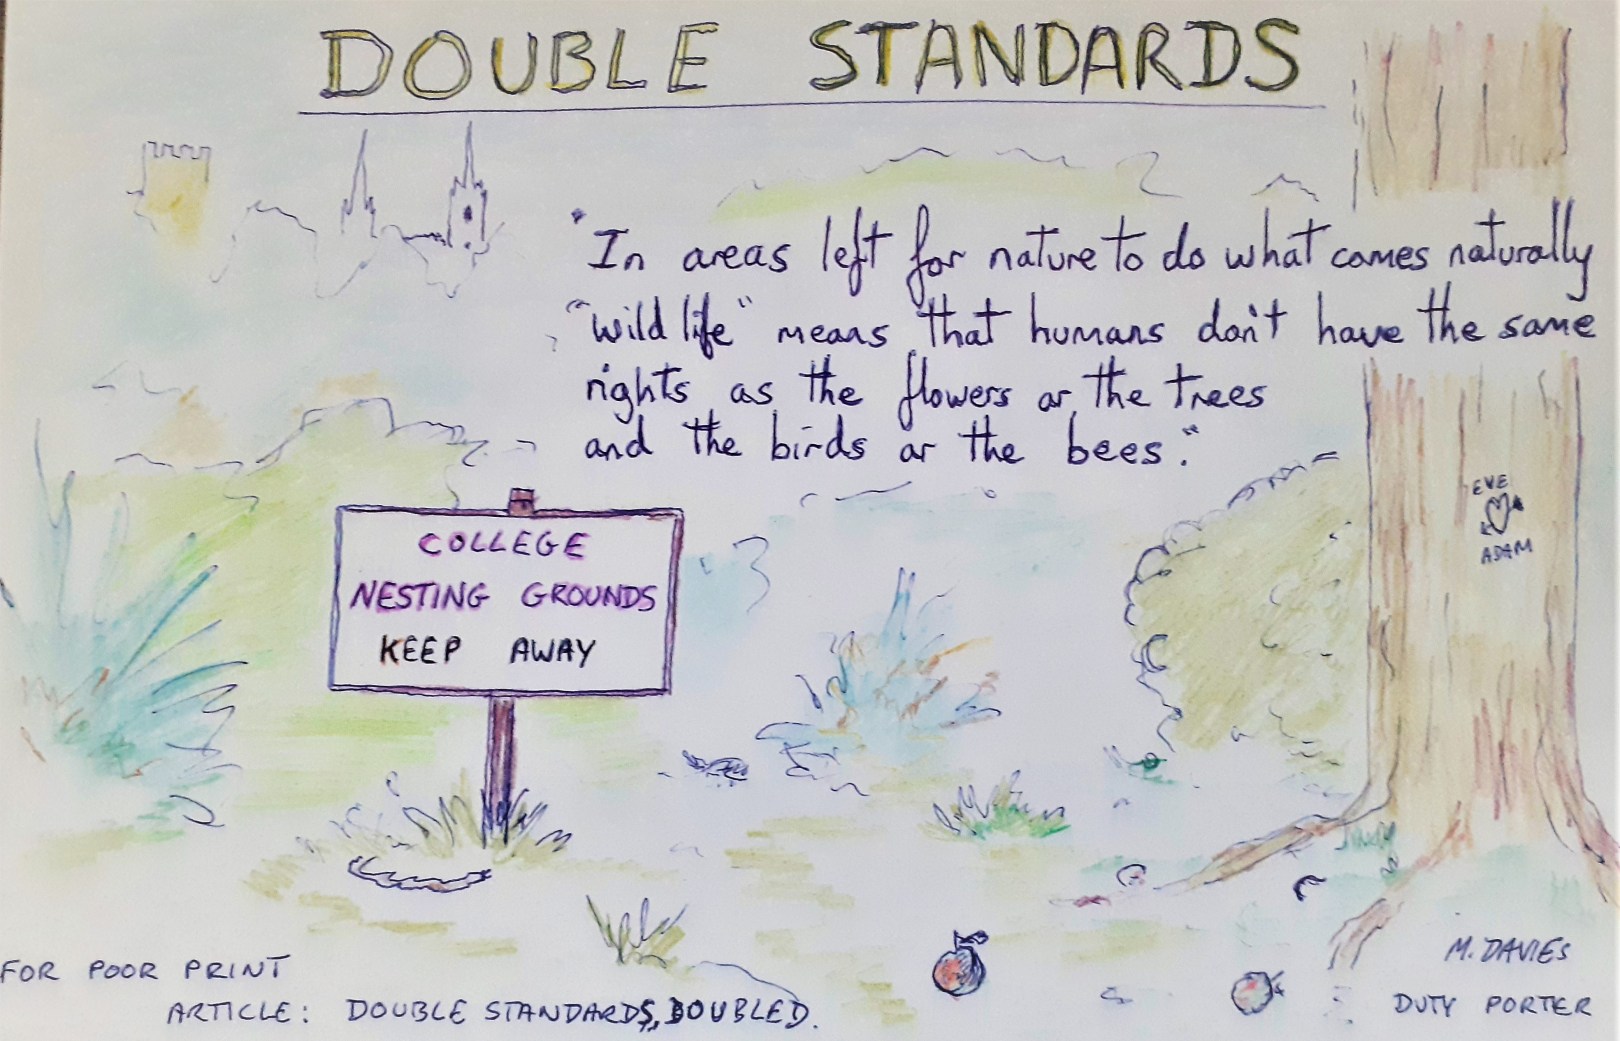 DOUBLE STANDARDS
"In areas left for nature to do what comes naturally
"wild life" means that humans don't have the same
rights as the flowers or the trees
and the birds or the bees."
EVE
ADAM
COLLEGE
NESTING GROUNDS
KEEP AWAY
FOR POOR PRINT
ARTICLE: DOUBLE STANDARDS, DOUBLED.
M. DAVIES
DUTY PORTER